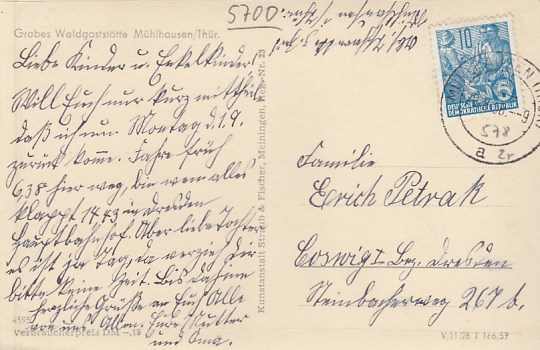 5700
Grabes Waldgaststätte Mühlhausen/Thür.
Liebe Kinder u. Enkelkinder!
Will Euch nur kurz mitteilen
daß ich am Montag d. 1.9.
zurück komme. Fahre früh
6.38 hier weg, bin wenn alles
klappt 14.43 in Dresden
Hauptbahnhof. Aber liebe Tochter
es ist ja Tag, da verzieh Dir
bitte keine Zeit. Bis dahin
herzliche Grüße an Euch Alle
von uns Allen. Eure Mutter
und Oma.
4595
Verbraucherpreis DM -,15
Kunstanstalt Straub & Fischer, Meiningen, Reg.-Nr. 23
10
DEUTSCHE
DEMOKRATISCHE REPUBLIK
578
a zr
Familie
Erich Petrak
Coswig I Bez. Dresden
Steinbacherweg 267 b.
V/11/28 T 166/57